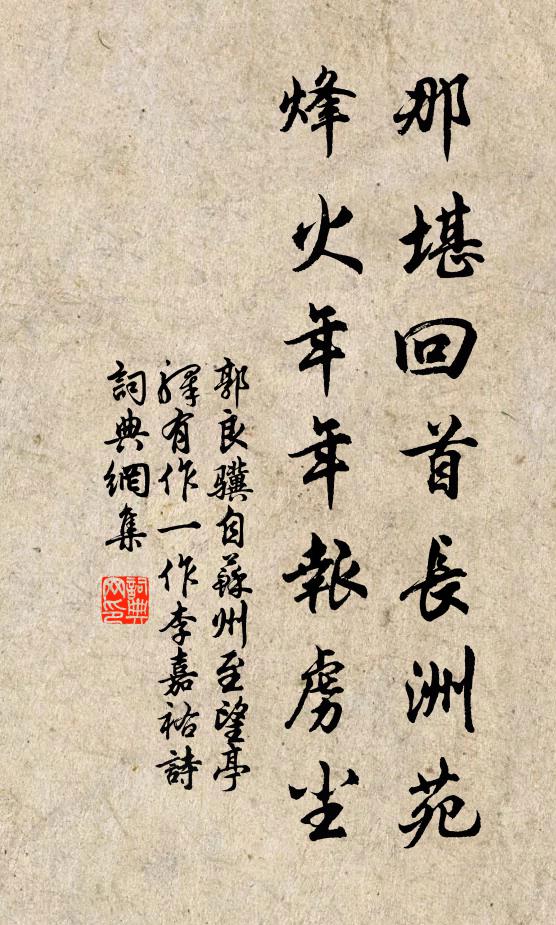 那堪回首長洲苑
烽火年年報虜尘
郭良驥自蘇州至望亭
驛有作一作李嘉祐詩
詞典網集
詞典
网印